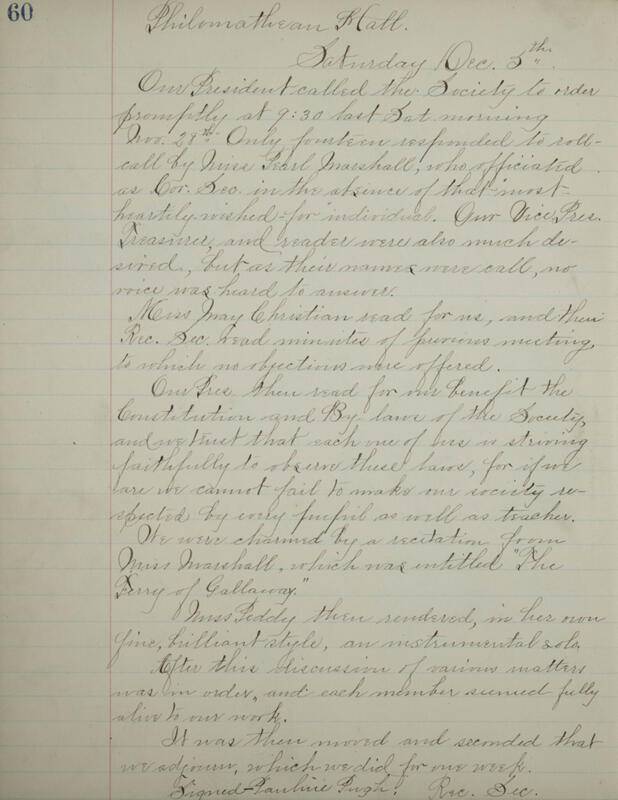 60
Philomathean Hall.
Saturday Dec. 5th.
Our President called the Society to order
promptly at 9:30 last Sat. morning
Nov. 28th. Only fourteen responded to roll-
call by Miss Pearl Marshall, who officiated
as Cor. Sec. in the absence of that "most-
heartily wished-for" individual. Our Vice Pres.
Treasurer, and reader were also much de-
sired, but as their names were call, no
voice was heard to answer.
Miss May Christian read for us, and then
Rec. Sec. read minutes of previous meeting,
to which no objections were offered.
Our Pres. then read for our benefit the
Constitution and By laws of the Society,
and we trust that each one of us is striving
faithfully to observe these laws, for if we
are we cannot fail to make our society re-
spected by every pupil as well as teacher.
We were charmed by a recitation from
Miss Marshall, which was entitled "The
Ferry of Gallaway."
Miss Peddy then rendered, in her own
fine, brilliant style, an instrumental solo.
After this discussion of various matters
was in order, and each member seemed fully
alive to our work.
It was then moved and seconded that
we adjourn, which we did for one week.
Signed-Pauline Pugh. Rec. Sec.